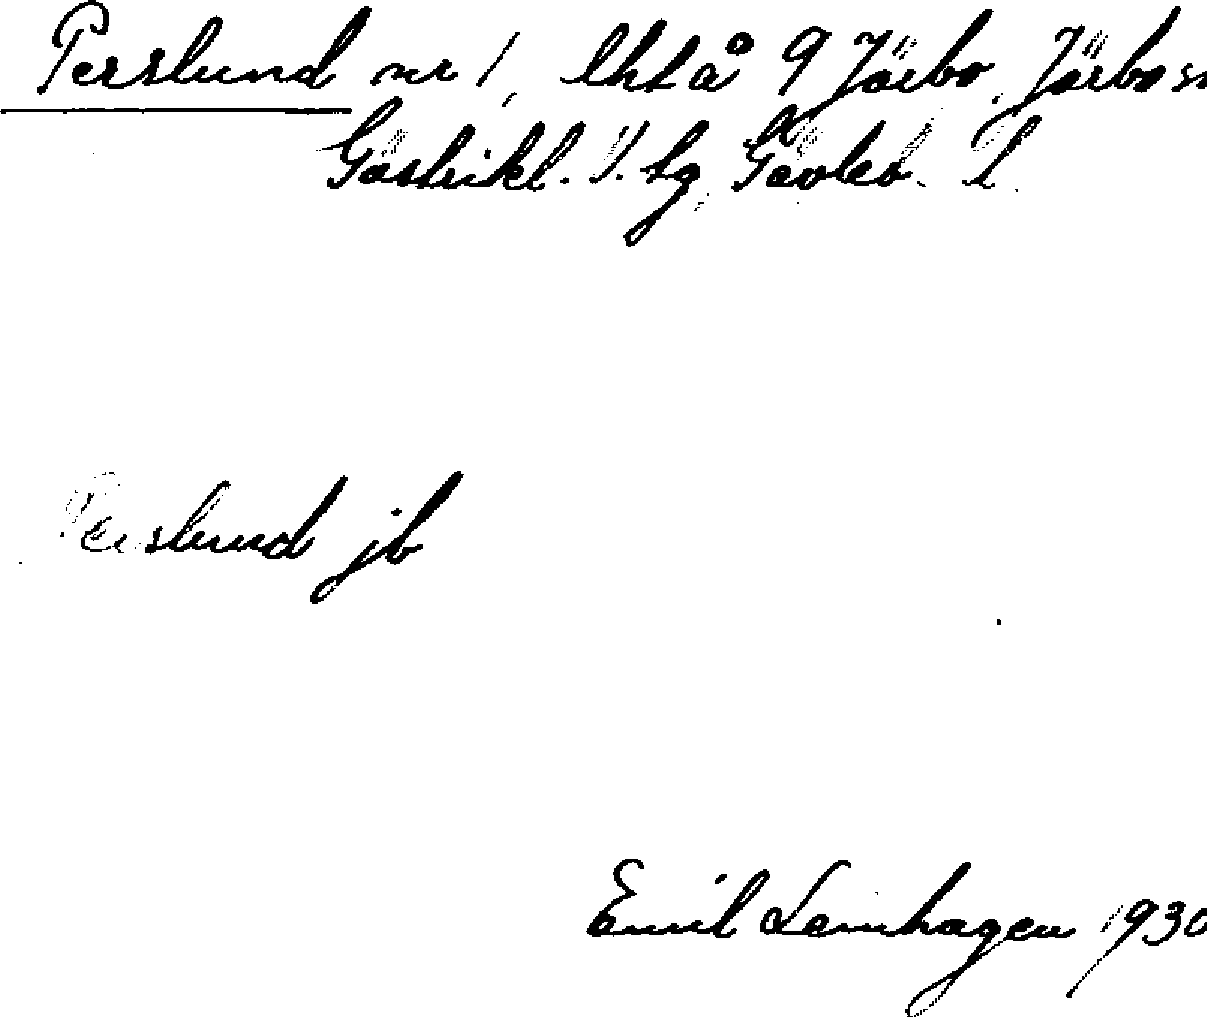 Perslund nr 1, lht å 9 Järbo, Järbo sn
Gästrikl. V. tg, Gävleb. L.
Perslund jb
Emil Lernhagen 1930